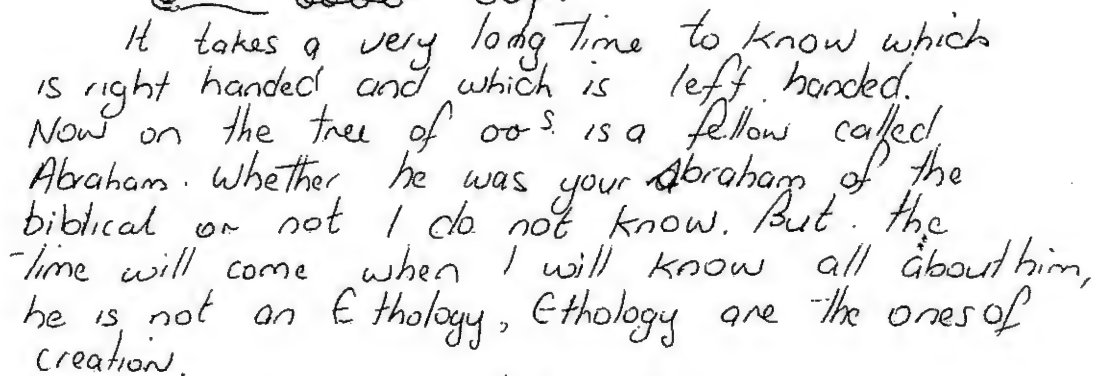 It takes a very long time to know which
is right handed and which is left handed.
Now on the tree of oo s. is a fellow called
Abraham. Whether he was your Abraham of the
biblical or not I do not know. But. the
time will come when I will know all about him,
he is not an Ethology, Ethology are the ones of
creation.